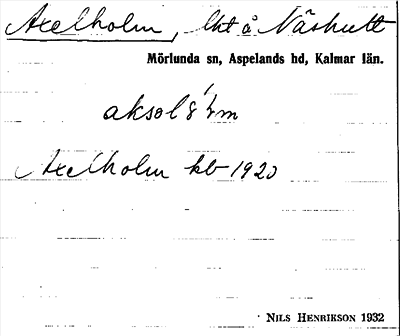 Axelholm, lht å Näshult
Mörlunda sn, Aspelands hd, Kalmar län.
Axelholm kb 1920
NILS HENRIKSON 1932